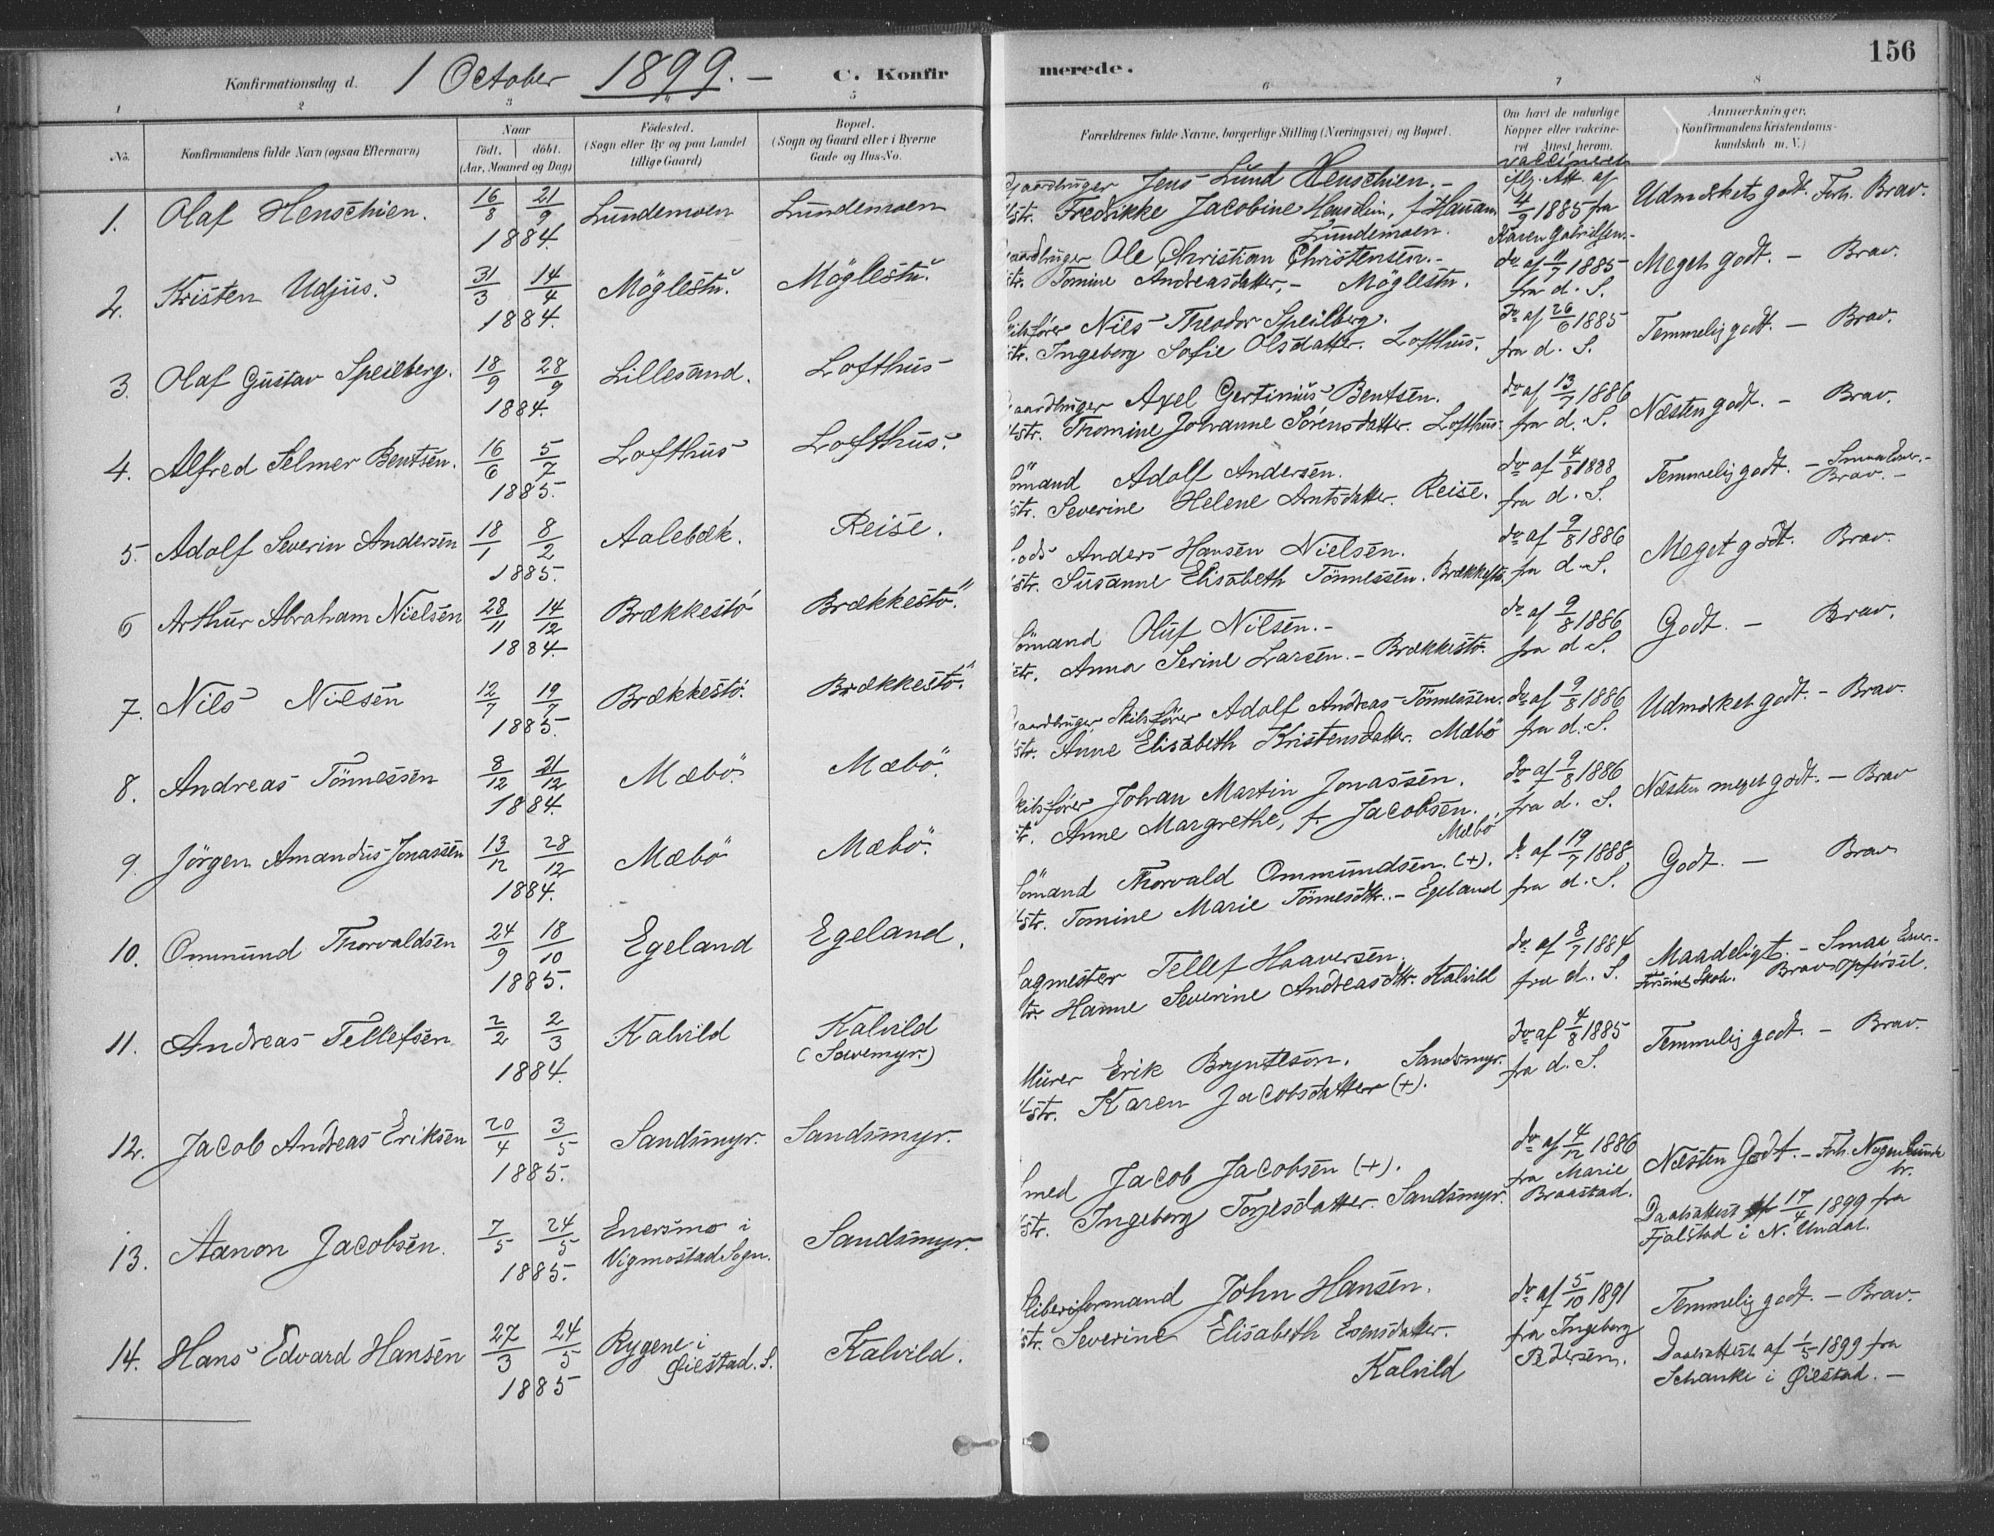 156
Konfirmationsdag d. 1 October 1899. — C. Konfirmerede.
1 2 3 5 6 7 8
No.
Konfirmandens fulde Navn (ogsaa Efternavn)
Naar
födt. döbt.
(Aar, Maaned og Dag)
Födested.
(Sogn eller By og paa Landet
tillige Gaard)
Bopæl.
(Sogn og Gaard eller i Byerne
Gade og Hus-No.
Forældrenes fulde Navne, borgerlige Stilling (Næringsvei) og Bopæl.
Om havt de naturlige
Kopper eller vakcine-
ret. Attest herom.
Anmærkninger.
(Konfirmandens Kristendoms-
kundskab m. V.)
1. Olaf Henschien. 16/8 21/9 1884. Lundemoen Lundemoen
Gaardbruger Jens Lund Henschien. —
Hstr. Fredrikke Jacobine Henschien, f. Hanam
Lundemoen.
vaccineret
iflg. Att. af
4/9 1885 fra
Karen Gabrielsen. —
Udmærket godt. Forh. Brav.
2. Kristen Udjus. 31/3 14/4 1884. Möglestu. Möglestu.
Gaardbruger Ole Christian Christensen. —
Hstr. Tomine Andreasdatter, — Möglestu.
do af 11/7 1885
fra d. S.
Meget godt. — Brav.
3. Olaf Gustav Speilberg. 18/9 28/9 1884. Lillesand. Lofthus
Skibsförer Nils Theodor Speilberg.
Hstr. Ingeborg Sofie Olsdatter. Lofthus.
do af 26/6 1885
fra d. S.
Temmelig godt. — Brav.
4. Alfred Selmer Bentsen. 16/6 5/7 1885. Lofthus Lofthus.
Gaardbruger Axel Gertinius Bentsen.
Hstr. Thomine Johanne Sörensdatter. Lofthus.
do af 13/7 1886
fra d. S.
Næsten godt. — Brav.
5. Adolf Severin Andersen 18/1 8/2 1885. Aalebæk. Reise.
Sömand Adolf Andersen.
Hstr. Severine Helene Arntsdatter. Reise.
do af 4/8 1888
fra d. S.
Temmelig godt. — Smaa Evner. —
Brav. —
6 Arthur Abraham Nielsen 28/11 14/12 1884. Brækkestö Brækkestö.
Lods Anders Hansen Nielsen.
Hstr. Susanne Elisabeth Tönnessen. Brækkestö.
do af 9/8 1886
fra d. S.
Meget godt. Brav.
7. Nils Nilsen 12/7 19/7 1885. Brækkestö. Brækkestö.
Sömand Oluf Nilsen. —
Hstr. Anna Serine Larsen. — Brækkestö.
do af 9/8 1886
fra d. S.
Godt. — Brav.
8. Andreas Tönnessen 8/12 21/12 1884. Mæbö. Mæbö.
Gaardbruger, Skibsförer Adolf Andreas Tönnessen.
Hstr. Anne Elisabeth Kristensdatter. Mæbö
do af 9/8 1886
fra d. S.
Udmærket godt. — Brav.
9. Jörgen Amandus Jonassen 13/12 28/12 1884. Mæbö Mæbö.
Skibsförer Johan Martin Jonassen.
Hstr. Anne Margrethe, f. Jacobsen.
Mæbö
do af 9/8 1886
fra d. S.
Næsten meget godt. — Brav
10. Ommund Thorvaldsen 24/9 18/10 1885. Egeland Egeland.
Sömand Thorvald Ommundsen. (+).
Hstr. Tomine Marie Tönnesdtr. — Egeland
do af 19/7 1888
fra d. S.
Godt. — Brav
11. Andreas Tellefsen 2/2 2/3 1884. Kalvild Kalvild
(Savemyr.)
Sagmester Tellef Haaversen.
Hstr. Hanne Severine Andreasdtr. Kalvild
do af 8/7 1884
fra d. S.
Maadeligt. — Smaa Evner. —
Forsömt Skole. Brav Opförsel.
12. Jacob Andreas Eriksen 20/4 3/5 1885. Sandsmyr. Sandsmyr.
Murer Erik Brynteson. Sandsmyr.
Hstr. Karen Jacobsdatter (+).
do af 4/8 1885
fra d. S.
Temmelig godt. — Brav.
13. Aanon Jacobsen. 7/5 24/5 1885. Enersmo i
Vigmostad Sogn. Sandsmyr.
Smed Jacob Jacobsen (+).
Hstr. Ingeborg Torjesdatter. Sandsmyr.
do af 4/12 1886
fra Marie
Braastad.
Næsten Godt. — Forh.
Daabsattest af 17/4 1899 fra
Fjalstad i N. Undal.
14. Hans Edvard Hansen 27/3 24/5 1885 Rygene i
Öiestad. S. Kalvild.
Sliberiformand John Hansen.
Hstr. Severine Elisabeth Evensdatter.
Kalvild
do af 5/10 1891
fra Ingeborg
Pedersen.
Temmelig godt. — Brav.
Daabsattest af 1/5 1899 fra
Schanke i Öiestad. —